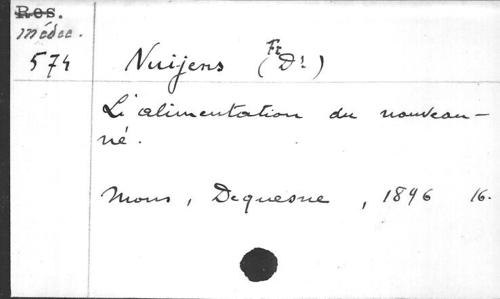 Res.
médec.
574
Nuijens (Fr Dr)
L'alimentation du nouveau-
né.
Mons, Dequesne, 1896 16.